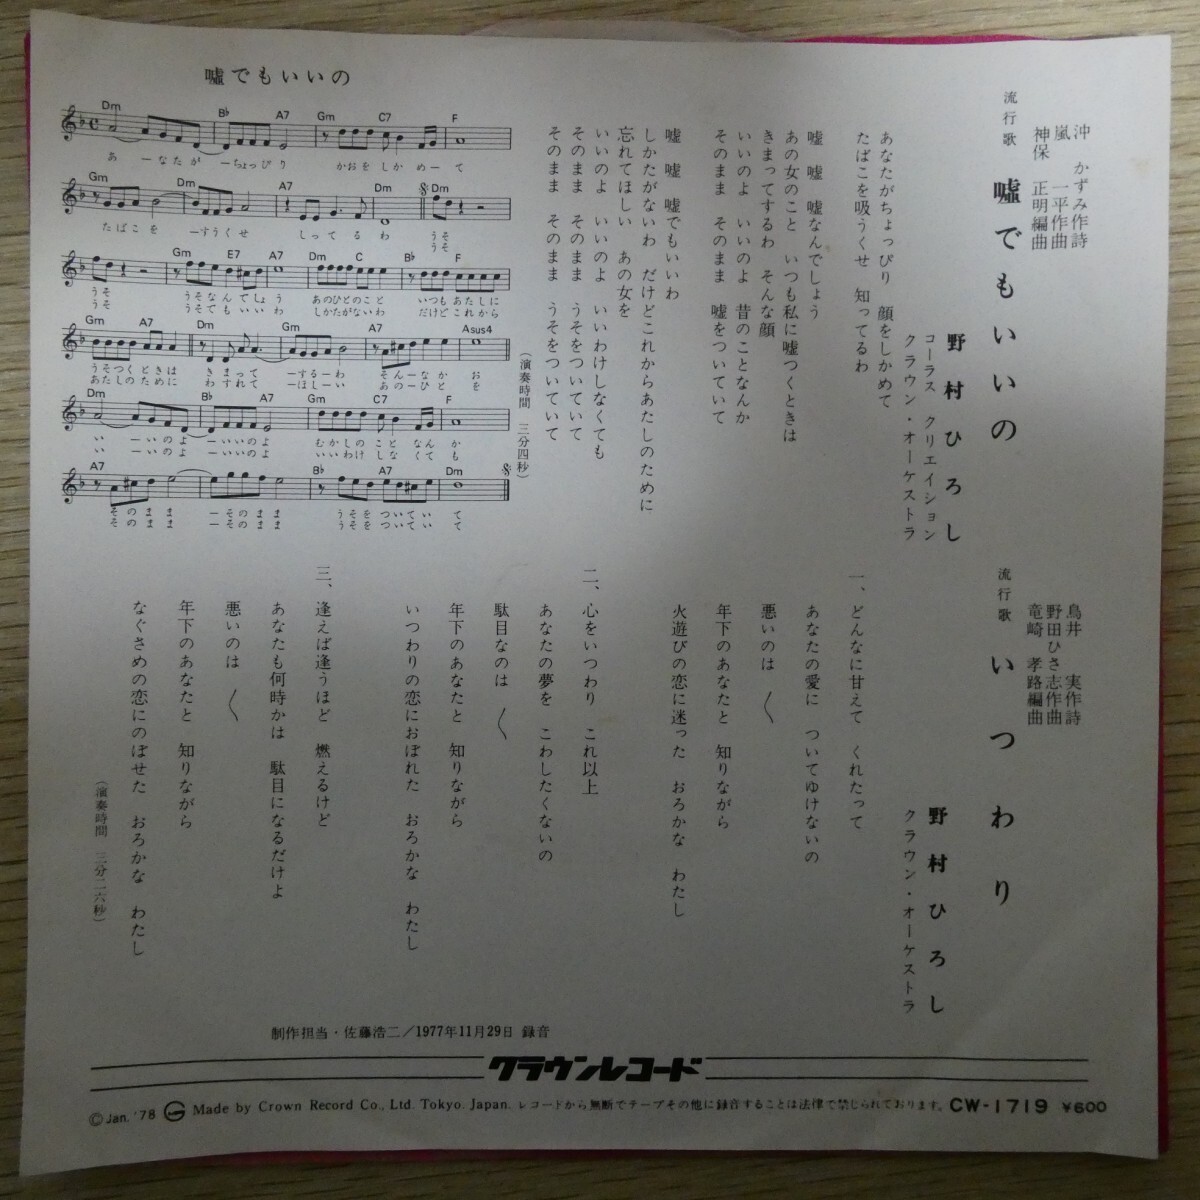 嘘でもいいの
Dm B♭ A7 Gm C7 F
あーなたが ーちょっぴり かおをしかめーて
Gm Dm A7 Dm Dm
たばこを ーすうくせ しってるわ うそ
うそ
Gm E7 A7 Dm C B♭ F
うそ うそなんでしょう あのひとのこと いつもあたしに
うそ うそでもいいわ しかたがないわ だけどこれから
Gm A7 Dm Gm A7 Asus4
うそつくときは きまって ーするーわ そんーなか お
あたしのために わすれて ーほしーい あのーひと を
Dm A7 Gm C7 F
いーいのよ ーいいのよ むかしのこと なんか
いーいのよ ーいいのよ いいわけしなくても
A7 B♭ A7 Dm
そのまま ーそのまま うそをついていて
そのまま ーそのまま うそをついていて
(演奏時間 三分四秒)
沖 かずみ作詩
嵐 一平作曲
神保 正明編曲
流行歌 嘘でもいいの
野村ひろし
コーラス クリエイション
クラウン・オーケストラ
あなたがちょっぴり 顔をしかめて
たばこを吸うくせ 知ってるわ
嘘 嘘 嘘なんでしょう
あの女のこと いつも私に嘘つくときは
きまってするわ そんな顔
いいのよ いいのよ 昔のことなんか
そのまま そのまま 嘘をついていて
嘘 嘘 嘘でもいいわ
しかたがないわ だけどこれからあたしのために
忘れてほしい あの女を
いいのよ いいのよ いいわけしなくても
そのまま そのまま うそをついていて
そのまま そのまま うそをついていて
鳥井 実作詩
野田ひさ志作曲
竜崎 孝路編曲
流行歌 いつわり
野村ひろし
クラウン・オーケストラ
一、どんなに甘えて くれたって
あなたの愛に ついてゆけないの
悪いのは 〱
年下のあなたと 知りながら
火遊びの恋に迷った おろかな わたし
二、心をいつわり これ以上
あなたの夢を こわしたくないの
駄目なのは 〱
年下のあなたと 知りながら
いつわりの恋におぼれた おろかな わたし
三、逢えば逢うほど 燃えるけど
あなたも何時かは 駄目になるだけよ
悪いのは 〱
年下のあなたと 知りながら
なぐさめの恋にのぼせた おろかな わたし
(演奏時間 三分二六秒)
制作担当・佐藤浩二/1977年11月29日 録音
クラウンレコード
©Jan.'78 Made by Crown Record Co., Ltd. Tokyo. Japan. レコードから無断でテープその他に録音することは法律で禁じられております。 CW-1719 ¥600